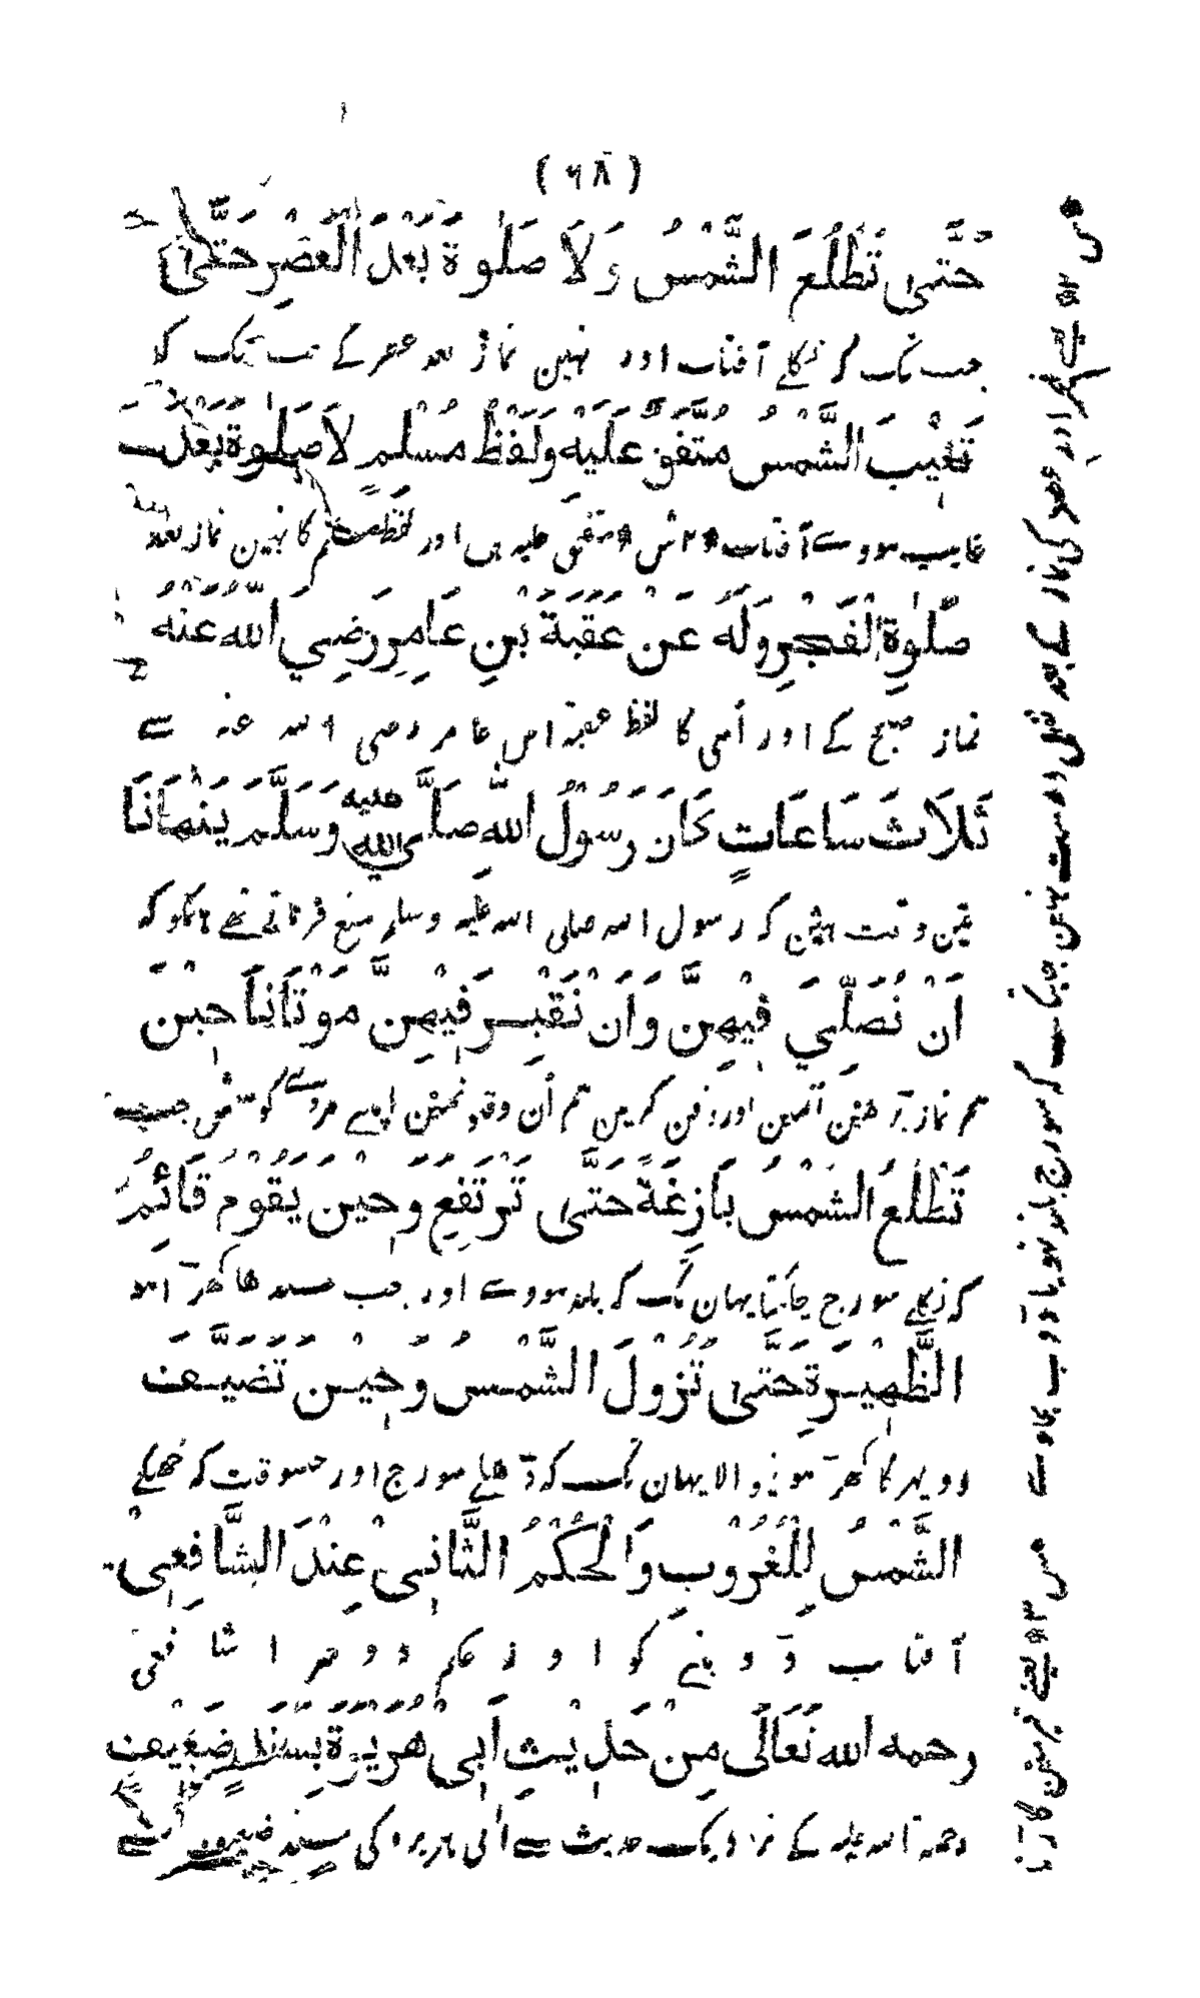 (٦٨)
حَتّٰى تَطْلُعَ الشَّمْسُ وَلَا صَلٰوةَ بَعْدَ الْعَصْرِ حَتّٰى
جب تک کہ نکلے آفتاب اور نہین نماز بعد عصر کے جب تک کہ
تَغِيْبَ الشَّمْسُ مُتَّفَقٌ عَلَيْهِ وَلَفْظُ مُسْلِمٍ لَا صَلٰوةَ بَعْدَ
غایب ہووے آفتاب ش متفق علیہ ہی اور لفظ مسلم کا نہین نماز بعد
صَلٰوةِ الْفَجْرِ وَلَهُ عَنْ عُقْبَةَ بْنِ عَامِرٍ رَضِيَ اللّٰهُ عَنْهُ
نماز صبح کے اور اُسی کا لفظ عقبہ ابن عامر رضی اللہ عنہ سے
ثَلَاثَ سَاعَاتٍ كَانَ رَسُوْلُ اللّٰهِ صَلَّى اللّٰه عليه وَسَلَّمَ يَنْهَانَا
تین وقت ہین کہ رسول اللہ صلی اللہ علیہ وسلم منع فرماتے تھے ہمکو کہ
اَنْ نُصَلِّيَ فِيْهِنَّ وَاَنْ نَقْبِرَ فِيْهِنَّ مَوْتَانَا حِيْنَ
ہم نماز پڑھین اُنمین اور دفن کرین ہم اُن وقتونمین اپنے مردے کو جب
تَطْلُعُ الشَّمْسُ بَازِغَةً حَتّٰى تَرْتَفِعَ وَحِيْنَ يَقُوْمُ قَائِمُ
کہ نکلے سورج چمکتا یہان تک کہ بلند ہووے اور جب کھڑا ہو
الظَّهِيْرَةِ حَتّٰى تَزُوْلَ الشَّمْسُ وَحِيْنَ تَضَيَّفَ
دوپہر کا کھڑا ہونیوالا یہان تک کہ ڈھلے سورج اور جسوقت کہ جھکے
الشَّمْسُ لِلْغُرُوْبِ وَالْحُكْمُ الثَّانِيْ عِنْدَ الشَّافِعِيْ
آفتاب ڈوبنے کو اور حکم دوسرا شافعی
رحمه الله تَعَالٰى مِنْ حَدِيْثِ اَبِيْ هُرَيْرَةَ بِسَنَدٍ ضَعِيْفٍ
رحمۃ اللہ علیہ کے نزدیک حدیث سے ابی ہریرہ کی سند ضعیف سے
یعنے فجر اور عصر کی نماز کے بعد نفل درست نہین جب تک کہ سورج بلند نہو یا ڈوب جاوے